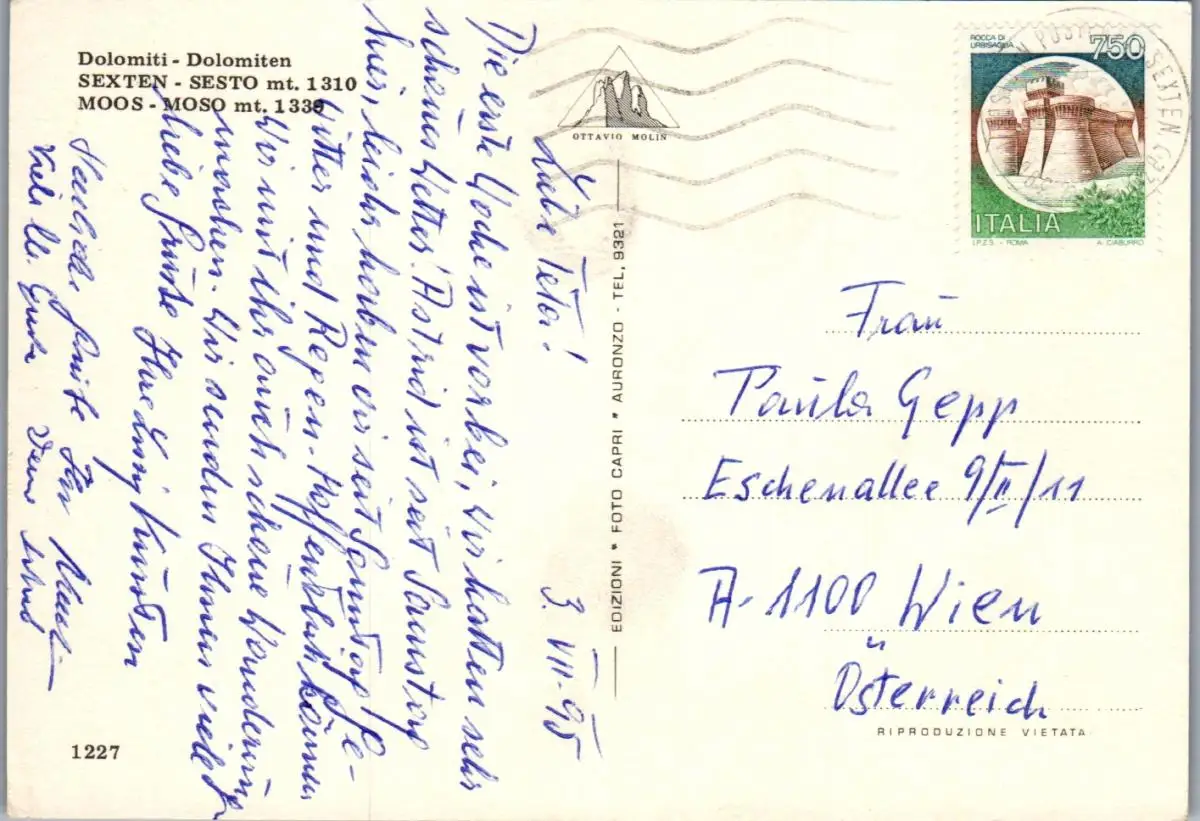 Dolomiti - Dolomiten
SEXTEN - SESTO mt. 1310
MOOS - MOSO mt. 1339
OTTAVIO MOLIN
ROCCA DI
URBISAGLIA
750
ITALIA
I.P.Z.S. - ROMA A. CIABURRO
SEXTEN
3. VII. 95
Liebe Teta!
Die erste Woche ist vorbei, wir hatten sehr
schönes Wetter! Astrid ist seit Samstag
hier, leider haben wir seit Sonntag Ge-
witter und Regen. Hoffentlich können
wir mit ihr auch schöne Wanderung
machen. Wir senden Ihnen viele
liebe Grüße Hedwig
Herzliche Grüße
Viele lb. Grüße Deine Astrid
EDIZIONI * FOTO CAPRI * AURONZO - TEL. 9321
Frau
Paula Gepp
Eschenallee 9/II/11
A-1100 Wien
Österreich
RIPRODUZIONE VIETATA
1227